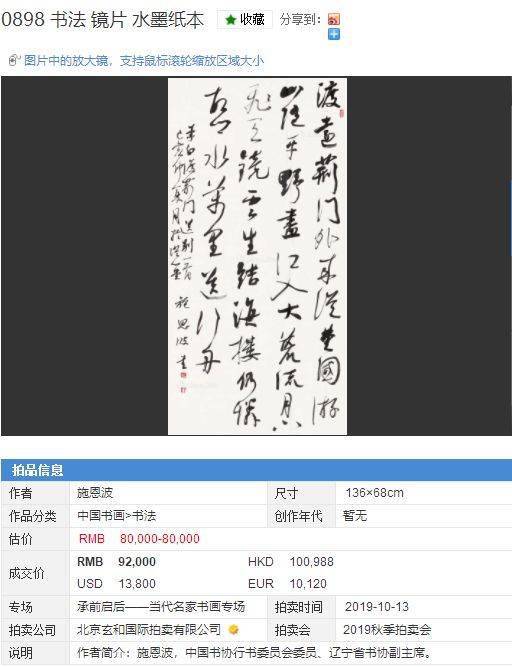 0898 书法 镜片 水墨纸本
收藏
分享到：
图片中的放大镜，支持鼠标滚轮缩放区域大小
渡遠荆门外来從楚國游
山随平野盡江入大荒流月下
飛天鏡雲生結海楼仍憐
故水萬里送行舟
李白渡荆门送别一首
己亥仲夏月於
施恩波書
拍品信息
作者 施恩波 尺寸 136×68cm
作品分类 中国书画>书法 创作年代 暂无
估价 RMB 80,000-80,000
成交价 RMB 92,000 HKD 100,988
USD 13,800 EUR 10,120
专场 承前启后——当代名家书画专场 拍卖时间 2019-10-13
拍卖公司 北京玄和国际拍卖有限公司 拍卖会 2019秋季拍卖会
说明 作者简介：施恩波，中国书协行书委员会委员、辽宁省书协副主席。